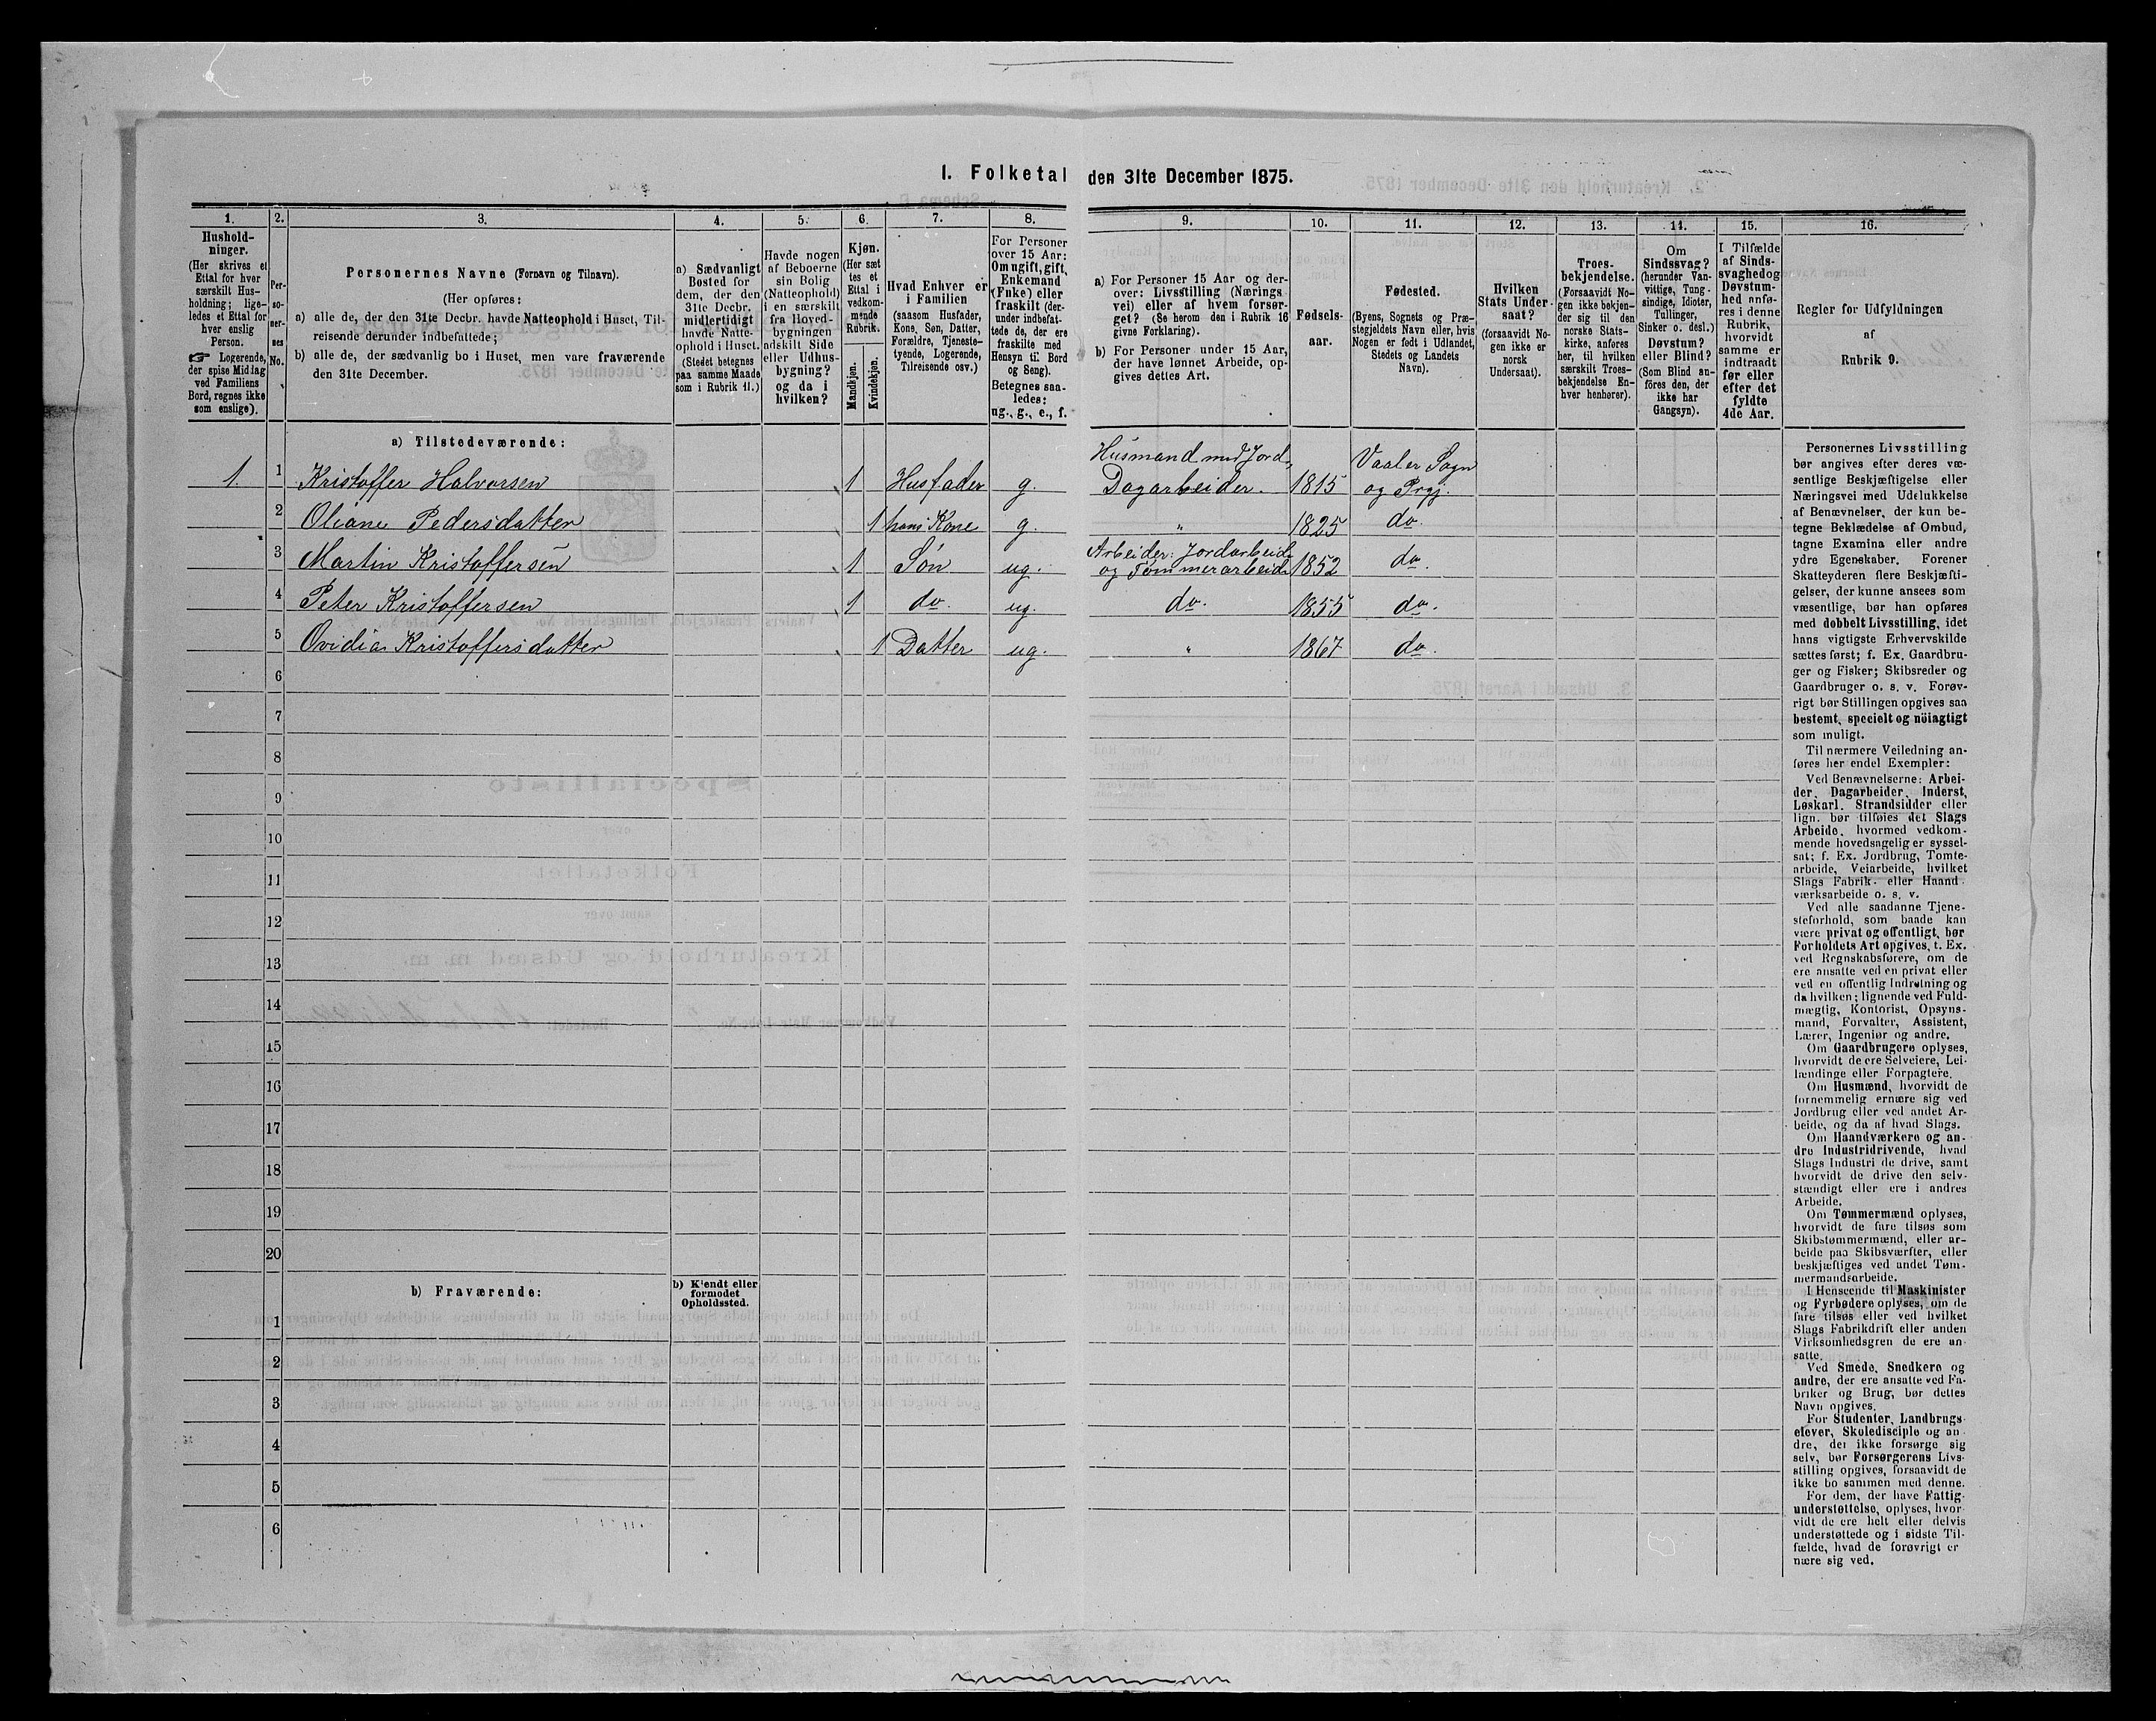 1. Folketal den 31te December 1875.
1.
Hushold-
ninger.
(Her skrives et
Ettal for hver
særskilt Hus-
holdning; lige-
ledes et Ettal for
hver enslig
Person.
☞ Logerende,
der spise Middag
ved Familiens
Bord, regnes ikke
som enslige).
2.
Per-
so-
ner-
nes
No.
3.
Personernes Navne (Fornavn og Tilnavn).
(Her opføres:
a) alle de, der den 31te Decbr. havde Natteophold i Huset, Til-
reisende derunder indbefattede;
b) alle de, der sædvanlig bo i Huset, men vare fraværende
den 31te December.
4.
a) Sædvanligt
Bosted for
dem, der den
31te Decbr.
midlertidigt
havde Natte-
ophold i Huset.
(Stedet betegnes
paa samme Maade
som i Rubrik 11.)
5.
Havde nogen
af Beboerne
sin Bolig
(Natteophold)
i en særskilt
fra Hoved-
bygningen
adskilt Side
eller Udhus-
bygning?
og da i
hvilken?
6.
Kjøn.
(Her sæt
tes et
Ettal i
vedkom-
mende
Rubrik.
Mandkjøn.
Kvindekjøn.
7.
Hvad Enhver er
i Familien
(saasom Husfader,
Kone, Søn, Datter,
Forældre, Tjeneste-
tyende, Logerende,
Tilreisende osv.)
8.
For Personer
over 15 Aar:
Om ugift, gift,
Enkemand
(Enke) eller
fraskilt (der-
under indbefat-
tede de, der ere
fraskilte med
Hensyn til Bord
og Seng).
Betegnes saa-
ledes:
ug., g., e., f.
9.
a) For Personer 15 Aar og der-
over: Livsstilling (Nærings
vei) eller af hvem forsør-
get? (Se herom den i Rubrik 16
givne Forklaring).
b) For Personer under 15 Aar,
der have lønnet Arbeide, op-
gives dettes Art.
10.
Fødsels-
aar.
11.
Fødested.
(Byens, Sognets og Præ-
stegjeldets Navn eller, hvis
Nogen er født i Udlandet,
Stedets og Landets
Navn).
12.
Hvilken
Stats Under-
saat?
(forsaavidt No-
gen ikke er
norsk
Undersaat).
13.
Troes-
bekjendelse.
(Forsaavidt No-
gen ikke bekjen-
der sig til den
norske Stats-
kirke, anføres
her, til hvilken
særskilt Troes-
bekjendelse En-
hver henhører).
14.
Om
Sindssvag?
(herunder Van-
vittige, Tung-
sindige, Idioter,
Tullinger,
Sinker o. desl.)
Døvstum?
eller Blind?
(Som Blind an-
føres den, der
ikke har
Gangsyn).
15.
I Tilfælde
af Sinds-
svaghed og
Døvstum-
hed anfø-
res i denne
Rubrik,
hvorvidt
samme er
indtraadt
før eller
efter det
fyldte
4de Aar.
16.
Regler for Udfyldningen
af
Rubrik 9.
a) Tilstedeværende:
1. 1 Kristoffer Halvorsen 1 Husfader g. Husmand med Jord, Dagarbeider. 1815 Vaaler Sogn og Prgj.
2 Oliane Pedersdatter 1 hans Kone g. " 1825 do.
3 Martin Kristoffersen 1 Søn ug. Arbeider: Jordarbeide og Tømmerarbeide 1852 do.
4 Peter Kristoffersen 1 do. ug. do. 1855 do.
5 Ovidia Kristoffersdatter 1 Datter ug. " 1867 do.
6
7
8
9
10
11
12
13
14
15
16
17
18
19
20
b) Fraværende:
b) Kjendt eller
formodet
Opholdssted.
1
2
3
4
5
6
Personernes Livsstilling
bør angives efter deres væ-
sentlige Beskjæftigelse eller
Næringsvei med Udelukkelse
af Benævnelser, der kun be-
tegne Beklædelse af Ombud,
tagne Examina eller andre
ydre Egenskaber. Forener
Skatteyderen flere Beskjæfti-
gelser, der kunne ansees som
væsentlige, bør han opføres
med dobbelt Livsstilling, idet
hans vigtigste Erhvervskilde
sættes først; f. Ex. Gaardbru-
ger og Fisker; Skibsreder og
Gaardbruger o. s. v. Forøv-
rigt bør Stillingen opgives saa
bestemt, specielt og nøiagtigt
som muligt.
Til nærmere Veiledning an-
føres her endel Exempler:
Ved Benævnelserne: Arbei-
der, Dagarbeider, Inderst,
Løskarl, Strandsidder eller
lign. bør tilføies det Slags
Arbeide, hvormed vedkom-
mende hovedsagelig er syssel-
sat; f. Ex. Jordbrug, Tomte-
arbeide, Veiarbeide, hvilket
Slags Fabrik- eller Haand-
værksarbeide o. s. v.
Ved alle saadanne Tjene-
steforhold, som baade kan
være privat og offentligt, bør
Forholdets Art opgives, t. Ex.
ved Regnskabsførere, om de
ere ansatte ved en privat eller
ved en offentlig Indretning og
da hvilken; lignende ved Fuld-
mægtig, Kontorist, Opsyns-
mand, Forvalter, Assistent,
Lærer, Ingeniør og andre.
Om Gaardbrugere oplyses,
hvorvidt de ere Selveiere, Lei-
lændinge eller Forpagtere.
Om Husmænd, hvorvidt de
fornemmelig ernære sig ved
Jordbrug eller ved andet Ar-
beide, og da af hvad Slags.
Om Haandværkere og an-
dre Industridrivende, hvad
Slags Industri de drive, samt
hvorvidt de drive den selv-
stændigt eller ere i andres
Arbeide.
Om Tømmermænd oplyses,
hvorvidt de fare tilsøs som
Skibstømmermænd, eller ar-
beide paa Skibsværfter, eller
beskjæftiges ved andet Tøm-
mermandsarbeide.
I Henseende til Maskinister
og Fyrbødere oplyses, om de
fare tilsøs eller ved hvilket
Slags Fabrikdrift eller anden
Virksomhedsgren de ere an-
satte.
Ved Smede, Snedkere og
andre, der ere ansatte ved Fa-
briker og Brug, bør dettes
Navn opgives.
For Studenter, Landbrugs-
elever, Skoledisciple og an-
dre, der ikke forsørge sig
selv, bør Forsørgerens Livs-
stilling opgives, forsaavidt de
ikke bo sammen med denne.
For dem, der have Fattig-
understøttelse, oplyses, hvor-
vidt de ere helt eller delvis
understøttede og i sidste Til-
fælde, hvad de forøvrigt er
nære sig ved.